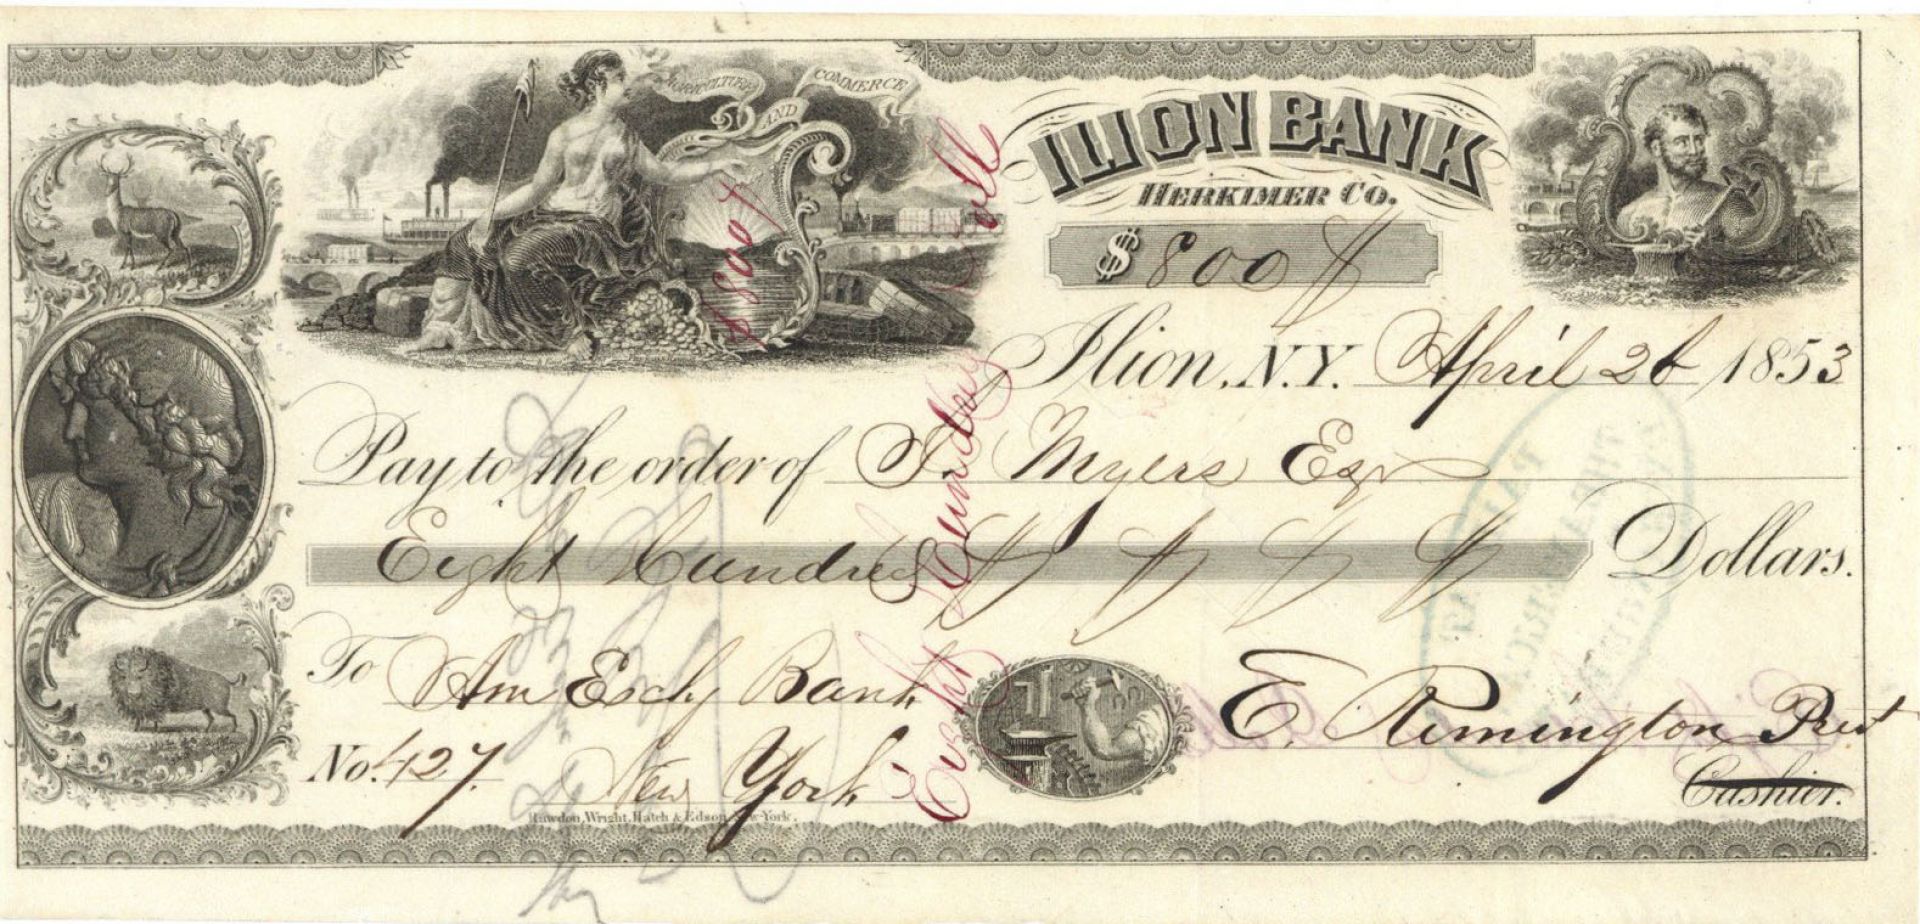 AGRICULTURE AND COMMERCE
ILION BANK
HERKIMER CO.
$ 800
Ilion, N.Y. April 26 1853
Pay to the order of I. Myers Esqr
Eight Hundred Dollars.
To Am Exch Bank
No. 427. New York
E. Remington Prest
Cashier.
Rawdon, Wright, Hatch & Edson, New-York.
$800
Eight Hundred Doll